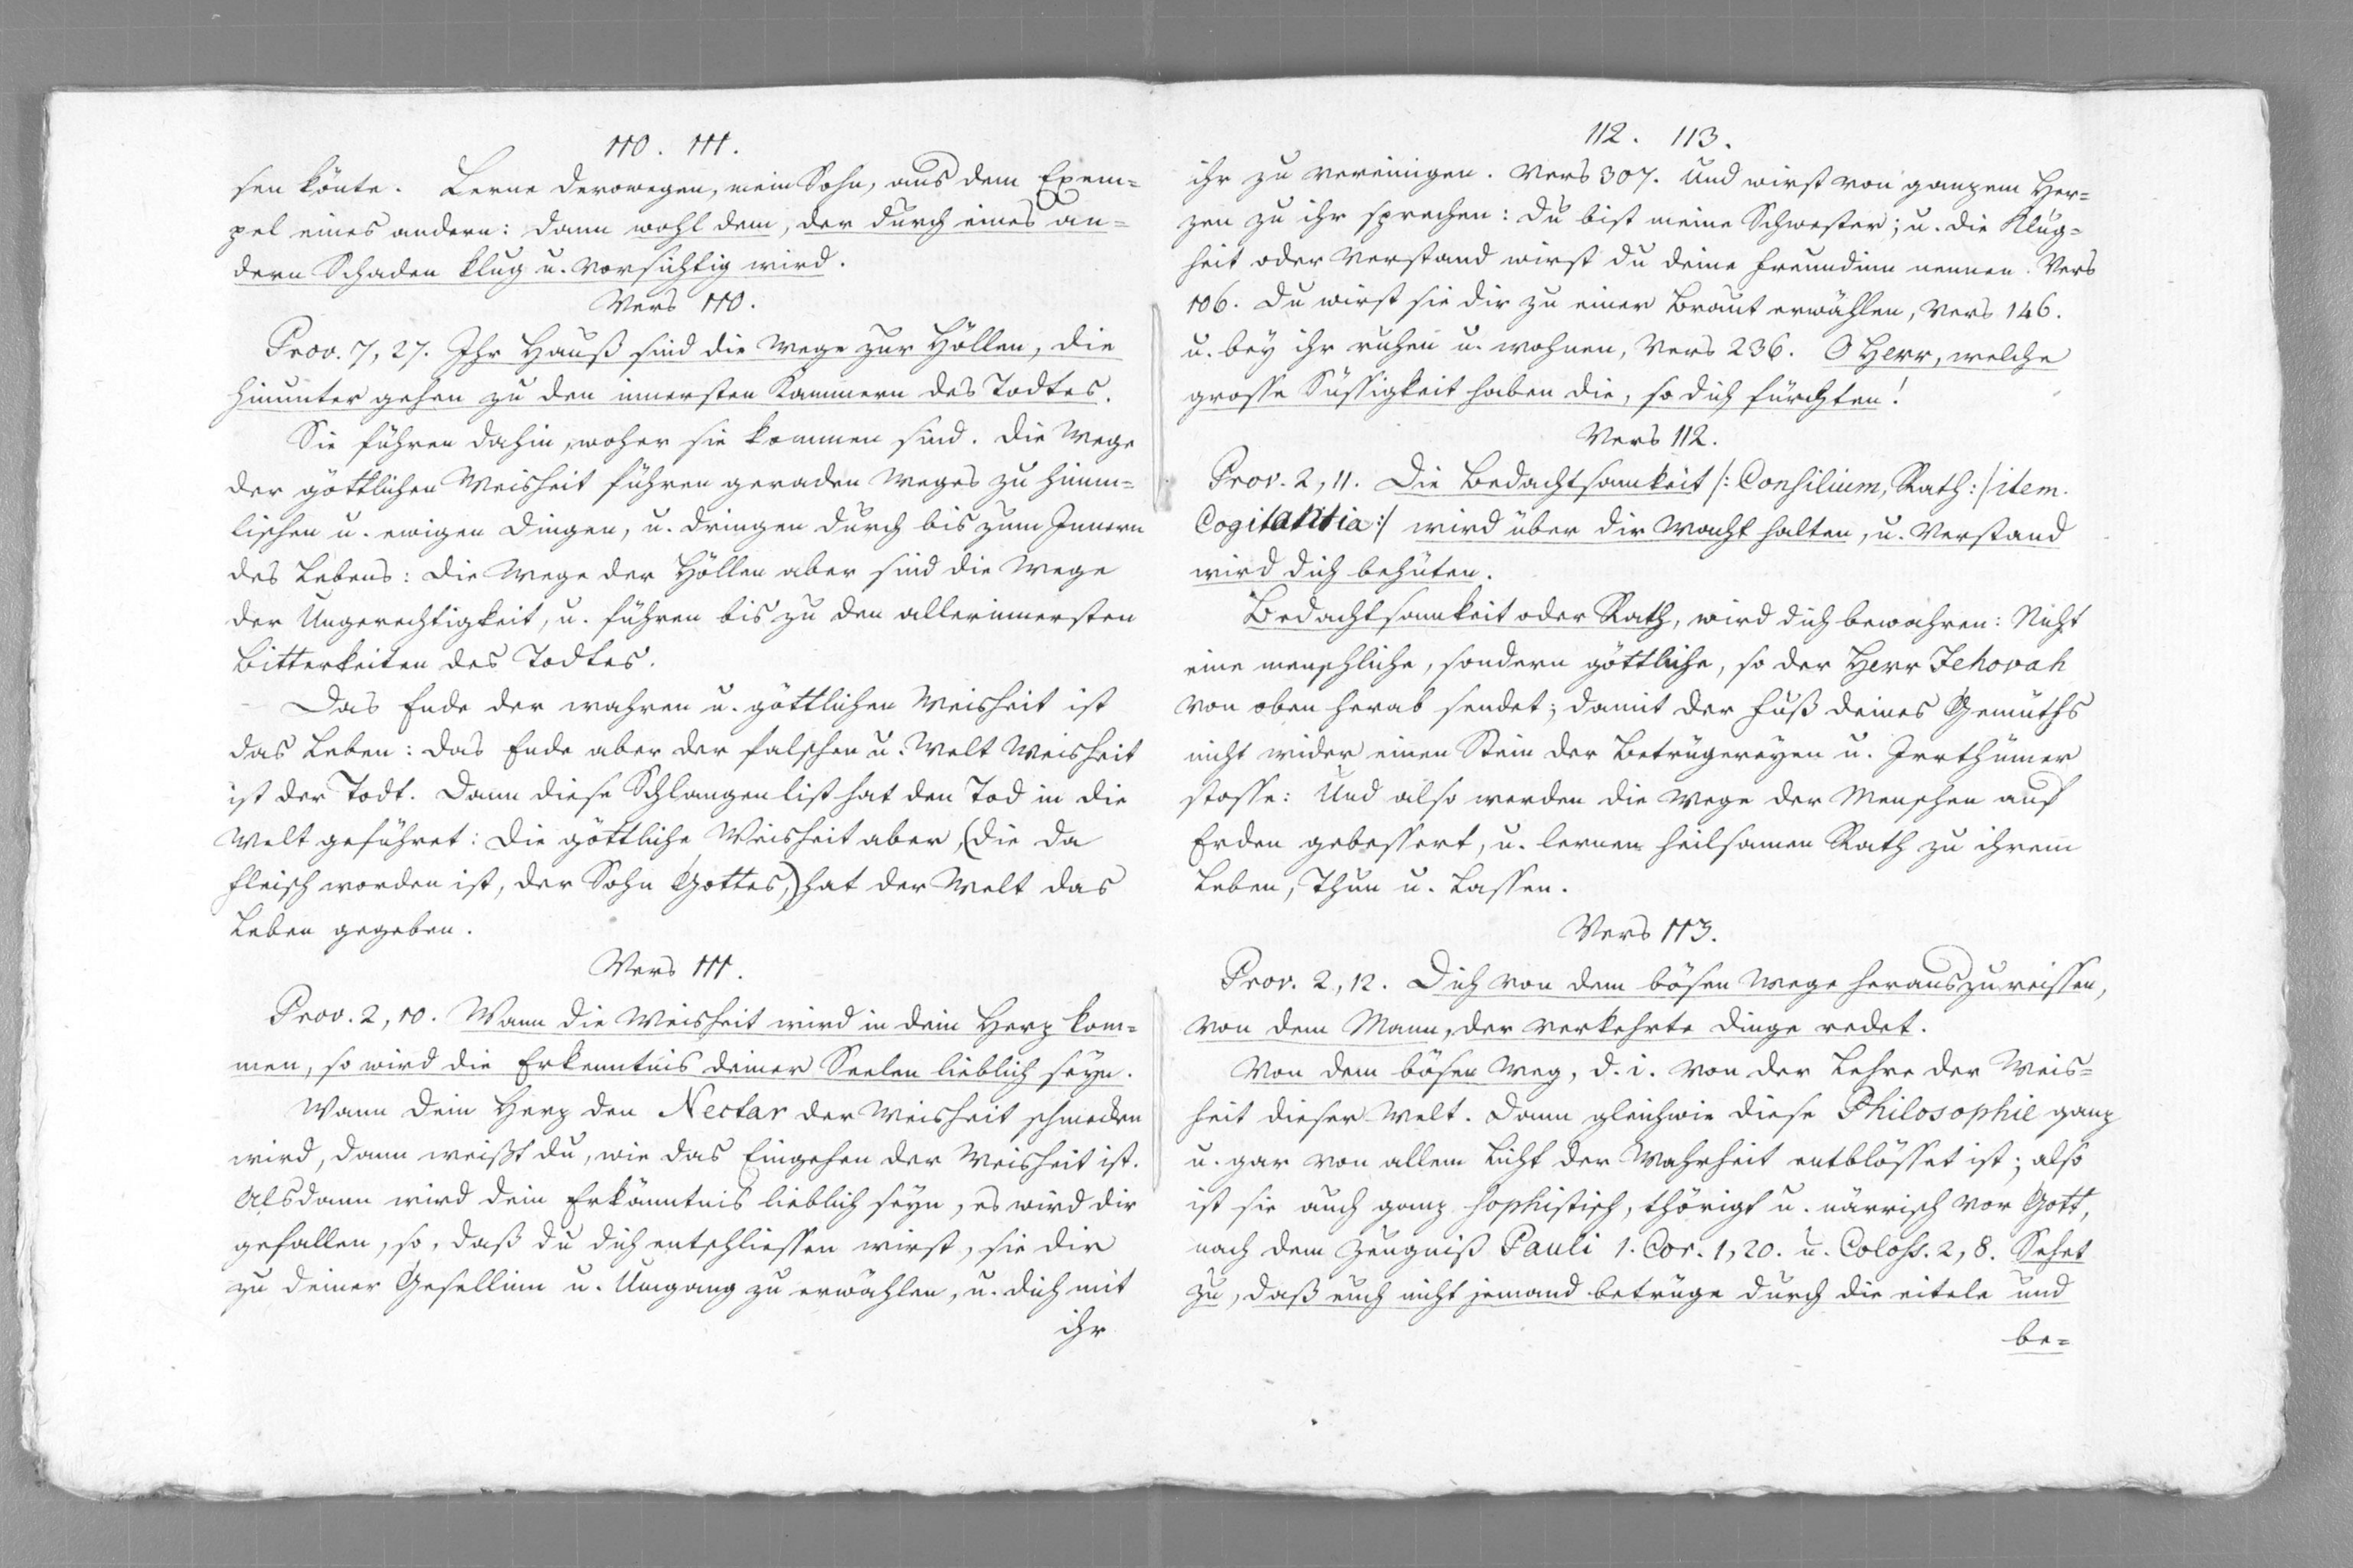 110. 111.
sen könte. Lerne derowegen, mein Sohn, aus dem Exem=
pel eines andern: dann wohl dem, der durch eines an=
dern Schaden klug u. vorsichtig wird.
Vers 110.
Prov. 7, 27. Ihr Hauß sind die Wege zur Höllen, die
hinunter gehen zu den innersten Kammern des Todtes.
Sie führen dahin, woher sie kommen sind. Die Wege
der göttlichen Weisheit führen geraden Weges zu himm=
lischen u. ewigen Dingen, u. dringen durch bis zum Innern
des Lebens: die Wege der Höllen aber sind die Wege
der Ungerechtigkeit, u. führen bis zu den allerinnersten
Bitterkeiten des Todtes.
Das Ende der wahren u. göttlichen Weisheit ist
das Leben: das Ende aber der falschen u. Welt Weisheit
ist der Todt. Dann diese Schlangenlist hat den Tod in die
Welt geführet: Die göttliche Weisheit aber, (die da
Fleisch worden ist, der Sohn Gottes,) hat der Welt das
Leben gegeben.
Vers 111.
Prov. 2, 10. Wann die Weisheit wird in dein Herz kom=
men, so wird die Erkenntnis deiner Seelen lieblich seyn.
Wann dein Herz den Nectar der Weisheit schmecken
wird, dann weißt du, wie das Eingehen der Weisheit ist.
Alsdann wird dein Erkänntnis lieblich seyn, es wird dir
gefallen, so, daß du dich entschliessen wirst, sie dir
zu deiner Gesellinn u. Umgang zu erwählen, u. dich mit
ihr
112. 113.
ihr zu vereinigen. Vers 307. Und wirst von ganzem Her=
zen zu ihr sprechen: du bist meine Schwester; u. die Klug=
heit oder Verstand wirst du deine Freundinn nennen. Vers
106. Du wirst sie dir zu einer Braut erwählen, Vers 146.
u. bey ihr ruhen u. wohnen, Vers 236. O Herr, welche
grosse Süssigkeit haben die, so dich fürchten!
Vers 112.
Prov. 2, 11. Die Bedachtsamkeit /: Consilium, Rath :/ item.
Cogitantia :/ wird über dir Wacht halten, u. Verstand
wird dich behüten.
Bedachtsamkeit oder Rath, wird dich bewahren: Nicht
eine menschliche, sondern göttliche, so der Herr Jehovah
von oben herab sendet; damit der Fuß deines Gemüths
nicht wider einen Stein der Betrügereyen u. Irrthümer
stosse: Und also werden die Wege der Menschen auf
Erden gebessert, u. lernen heilsamen Rath zu ihrem
Leben, Thun u. Lassen.
Vers 113.
Prov. 2, 12. Dich von dem bösen Wege herauszureissen,
von dem Mann, der verkehrte Dinge redet.
Von dem bösen Weg, d. i. von der Lehre der Weis=
heit dieser Welt. Dann gleichwie diese Philosophie ganz
u. gar von allem Licht der Wahrheit entblösset ist; also
ist sie auch ganz sophistisch, thörigt u. närrisch vor Gott,
nach dem Zeugniß Pauli 1. Cor. 1, 20. u. Coloss. 2, 8. Sehet
zu, daß euch nicht jemand betrüge durch die eitele und
be=